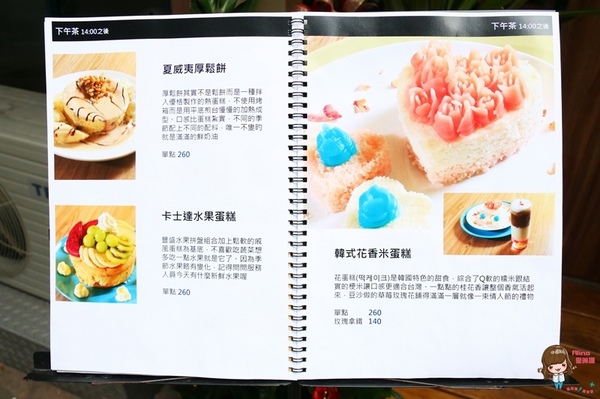 下午茶 14:00之後
夏威夷厚鬆餅
厚鬆餅其實不是鬆餅而是一種拌
入優格製作的熱蛋糕，不使用烤
箱而是用平底煎台慢慢的加熱成
型，口感比蛋糕紮實，不同的季
節配上不同的配料，唯一不變的
就是滿滿的鮮奶油
單點 260
卡士達水果蛋糕
豐盛水果拼盤組合加上鬆軟的戚
風蛋糕為基底，不喜歡吃蔬菜想
多吃一點水果就是它了。因為季
節水果略有變化，記得問問服務
人員今天有什麼新鮮水果喔
單點 260
下午茶 14:00之後
韓式花香米蛋糕
花蛋糕(떡케이크)是韓國特色的甜食，綜合了Q軟的糯米跟結
實的梗米讓口感更適合台灣。一點點的桂花香讓整個香氣活起
來，豆沙做的草莓玫瑰花鋪得滿滿一層就像一束情人節的禮物
單點 260
玫瑰拿鐵 140